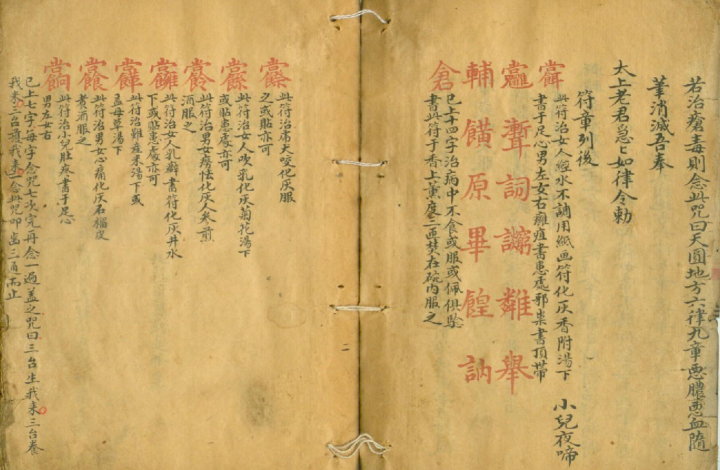 若治瘡毒則念此咒曰天圓地方六律九章惡膿惡血隨
筆消滅吾奉
太上老君急急如律令勅
符章列後
此符治女人經水不調用紙画符化灰香附湯下
書于足心男左女右癰疽書患處邪祟書頂帶 小兒夜啼
難舉
詞
原畢餭訥
輔饙
倉
已上十四字治病中不食或服或佩俱驗
書此符于香上薰處一面焚在碗內服之
此符治病犬咬化灰服
之或貼亦可
此符治女人吹乳化灰菊花湯下
或貼患處亦可
此符治男女瘧怯化灰人參煎
酒服之
此符治女人乳癖書符化灰井水
下或貼患處亦可
此符治難産米湯下或
益母草湯下
此符治男女心痛化灰石榴皮
煮酒服之
此符治小兒肚疼書于足心
男左女右
已上七字每字念咒七次完再念一過蓋之咒曰三台生我來三台養
我來三台護我來念此咒叩齒三通而止